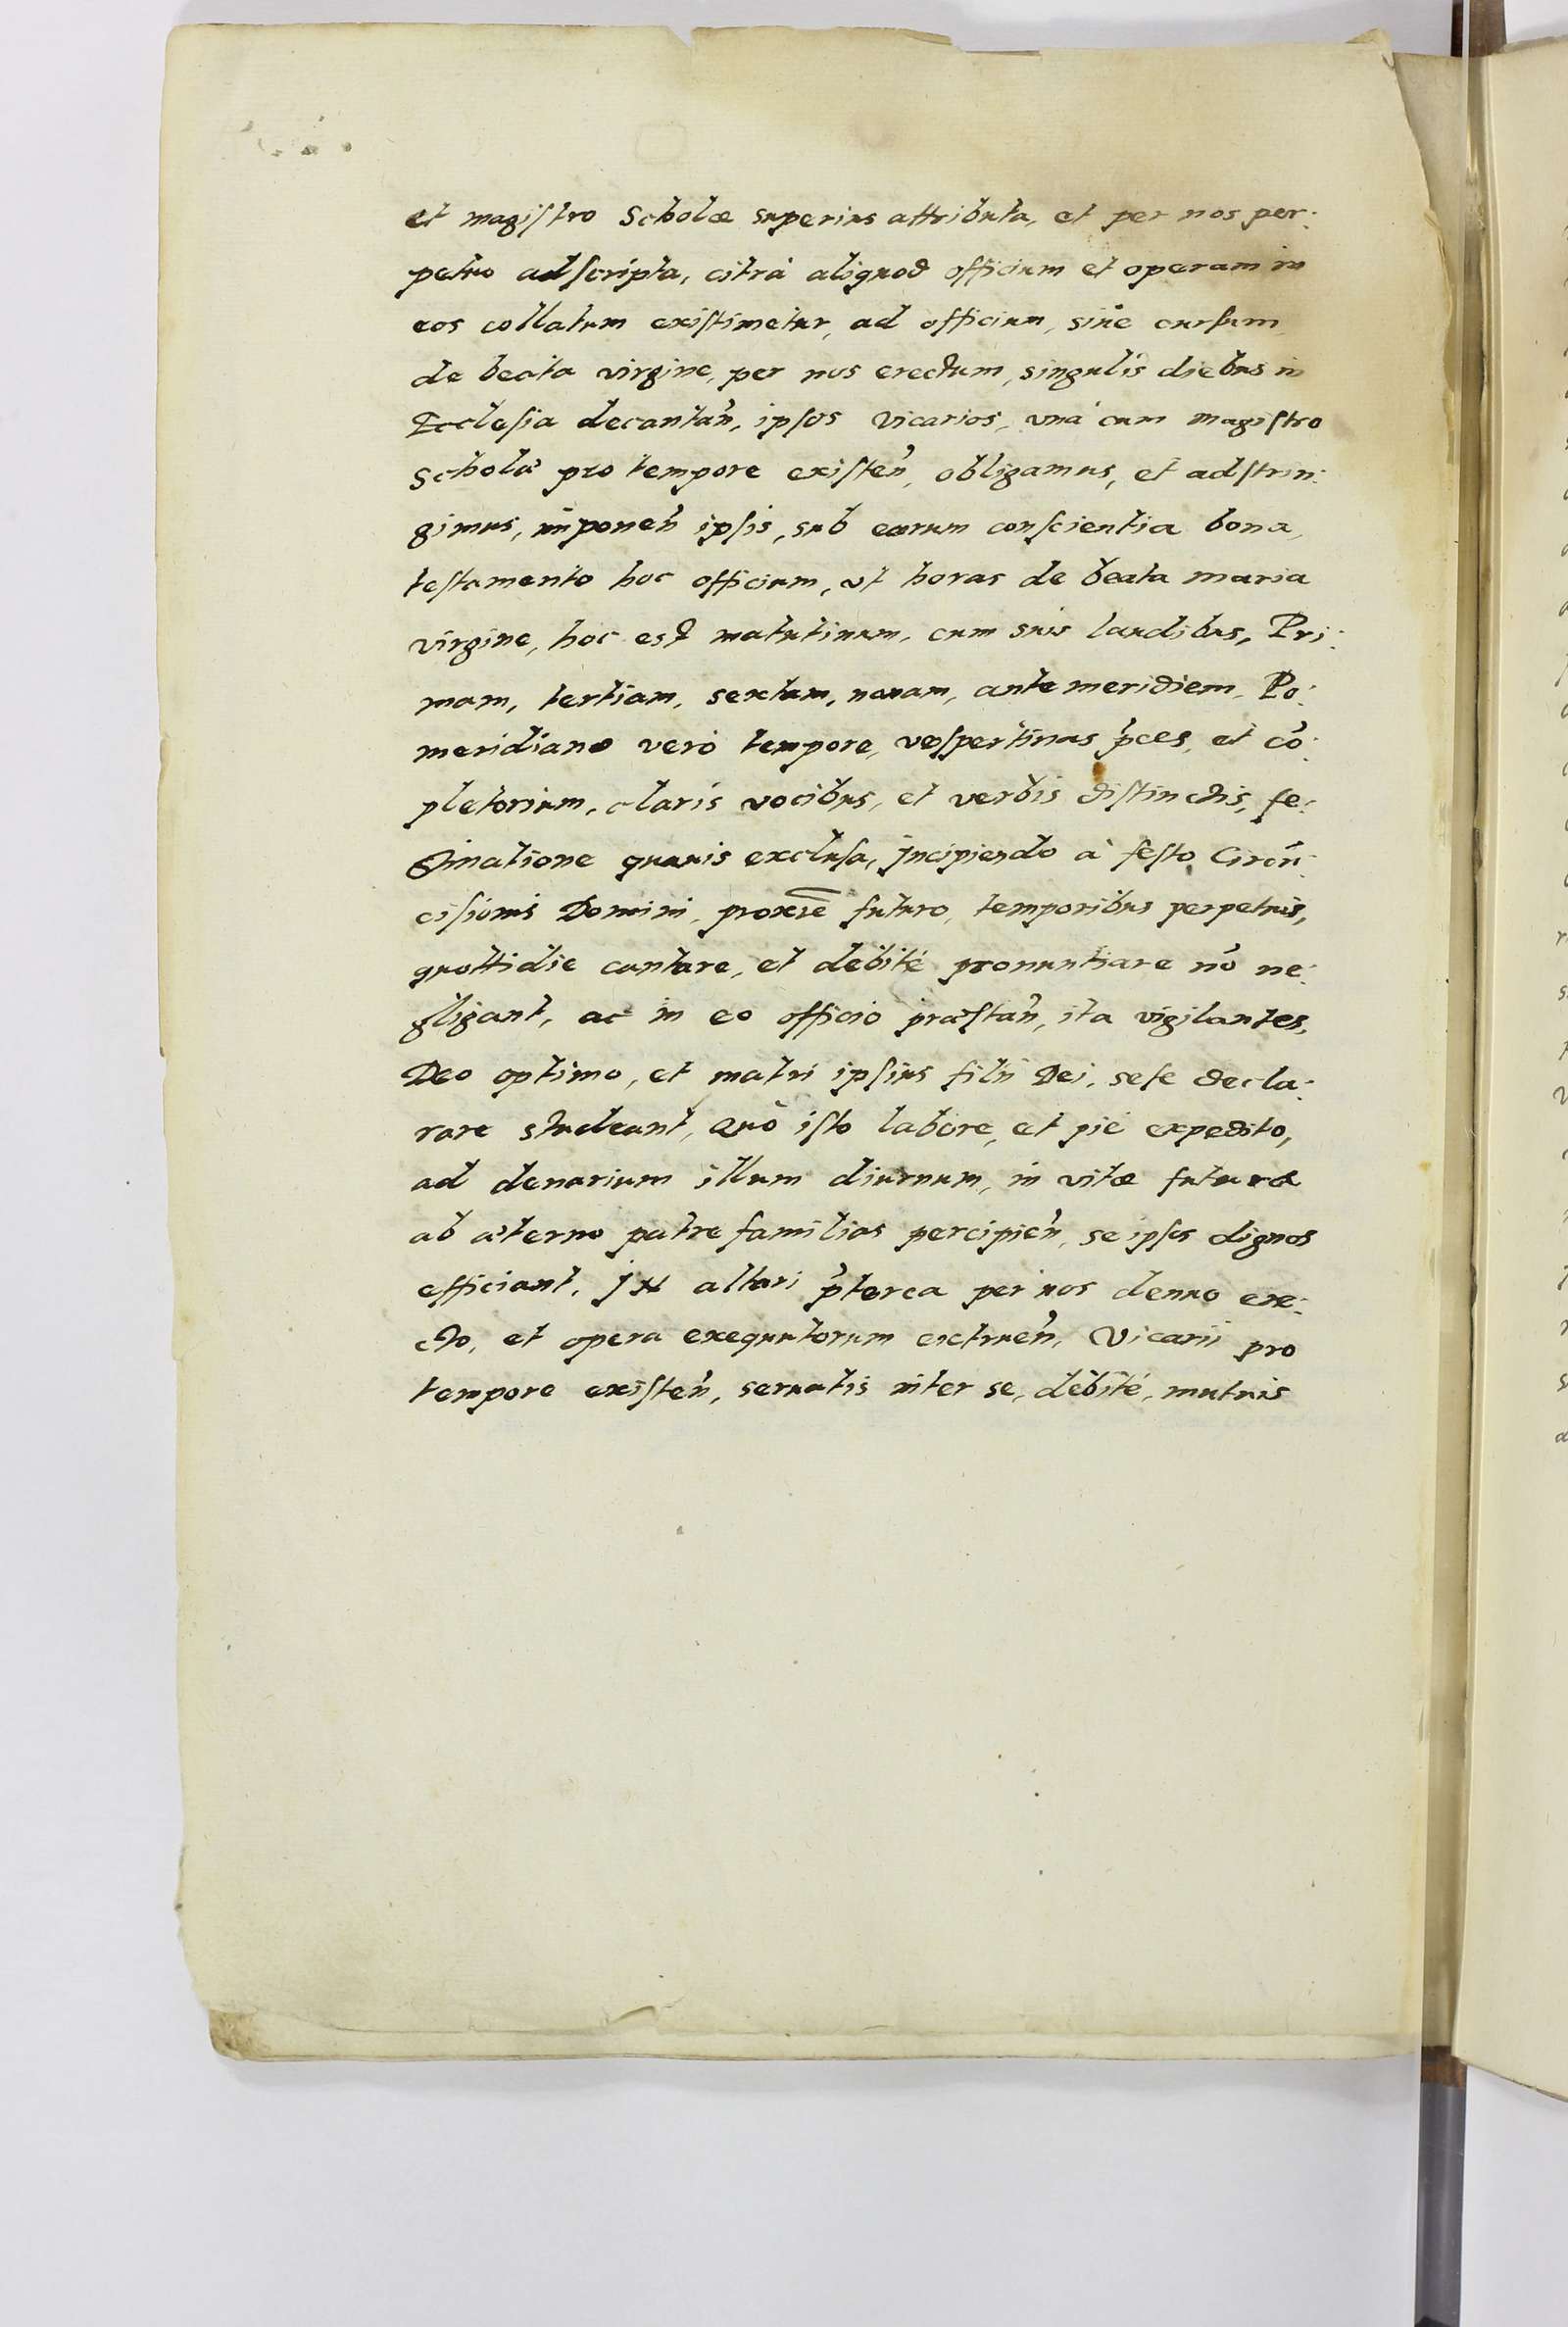 et magiſtro Scholæ superius attributa, et per nos per:
petuo adſcripta, citrà aliquod officium et operam in
eos collatum exiſtimetur, ad officium, siue curſum
de beata virgine, per nos erectum, singulis diebus in
Eccleſia decantan̄, ipſos Vicarios, vnà cum magiſtro
Scholæ pro tempore exiſten̄, obligamus, et adſtrin:
gimus, imponen̄ ipſis, sub earum conſcientia bona,
teſtamento hoc officium, vt horas de beata maria
virgine, hoc est matutinum, cum suis laudibus, Pri:
mam, tertiam, sextam, nonam, ante meridiem, Po:
meridiano verò tempore, veſpertinas p̄ces, et cō:
pletorium, claris vocibus, et verbis diſtinctis, fe:
stinatione quauis excluſa, Jncipiendo à feſto Circū:
ciſionis Domini, proxīē futuro, temporibus perpetuis,
quottidie cantare, et debitè pronuntiare nō ne:
gligant, ac in eo officio præſtan̄, ita vigilantes,
Deo optimo, et matri ipſius filii Dei, seſe decla:
rare studeant, Quò iſto labore, et piè expedito,
ad denarium illum diurnum, in vitæ futuræ
ab æterno patre familias percipien̄, se ipſos dignos
efficiant. JN altari p̄terea per nos denuo ere:
cto, et opera exequutorum exctruen̄, Vicarii pro
tempore exiſten̄, seruatis inter se, debitè, mutuis